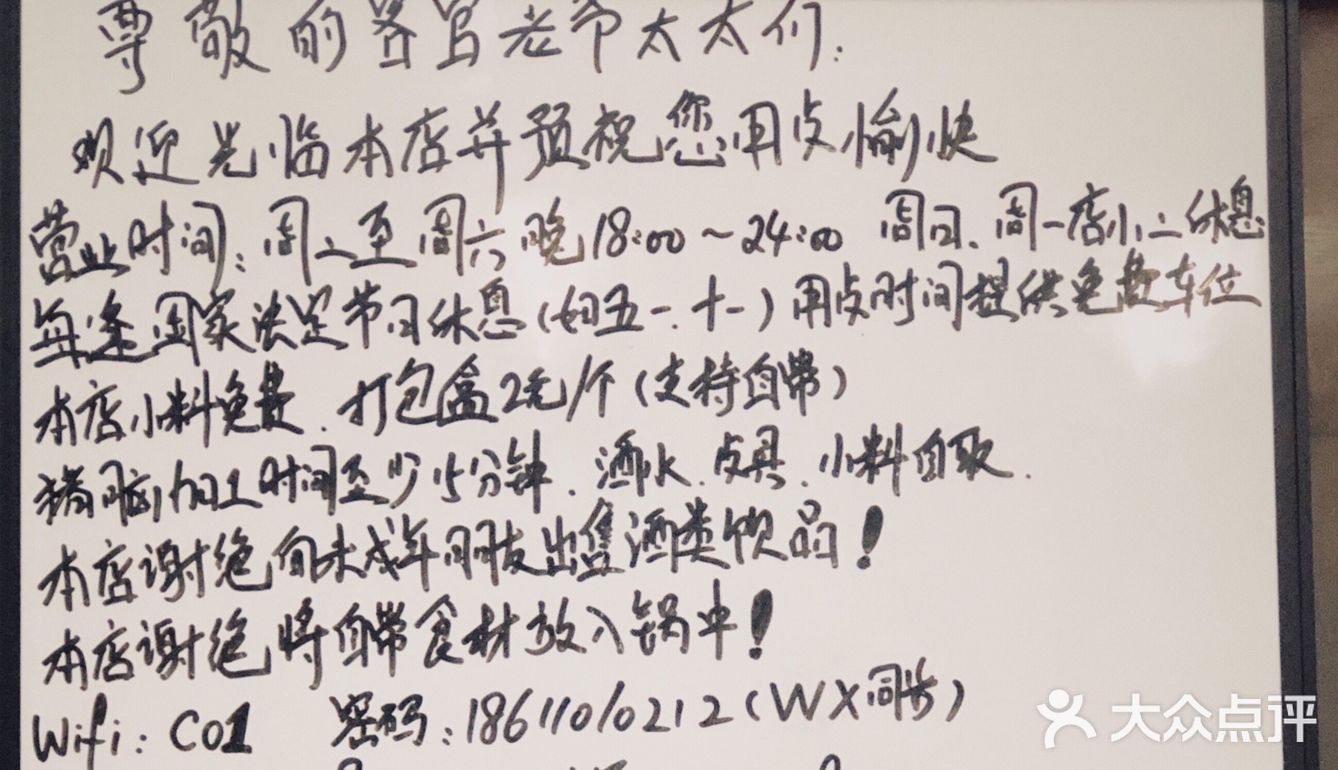 尊敬的客官老爷太太们：
欢迎光临本店并预祝您用点愉快
营业时间：周二至周六晚18:00～24:00 周日、周一店小二休息
每逢国家法定节日休息（如五一、十一）用点时间提供免费车位
本店小料免费、打包盒2元/个（支持自带）
猪脑加工时间至少15分钟、酒水、皮具、小料自取.
本店谢绝向未成年朋友出售酒类饮品！
本店谢绝将自带食材放入锅中！
Wifi：C01 密码：18611010212（WX同步）
大众点评